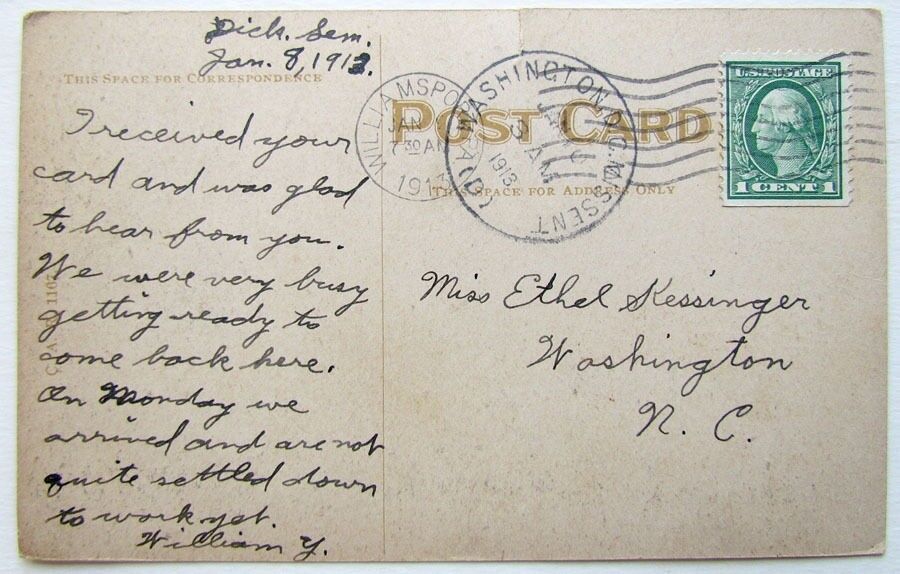 Dick. Sem.
Jan. 8, 1913.
THIS SPACE FOR CORRESPONDENCE
I received your
card and was glad
to hear from you.
We were very busy
getting ready to
come back here.
On Monday we
arrived and are not
quite settled down
to work yet.
William Y.
POST CARD
THIS SPACE FOR ADDRESS ONLY
WILLIAMSPORT, PA
JAN
7 30 AM
WASHINGTON, D.C. MISSENT
JAN
3 AM
1913
U.S. POSTAGE
1 CENT 1
Miss Ethel Kessinger
Washington
N. C.